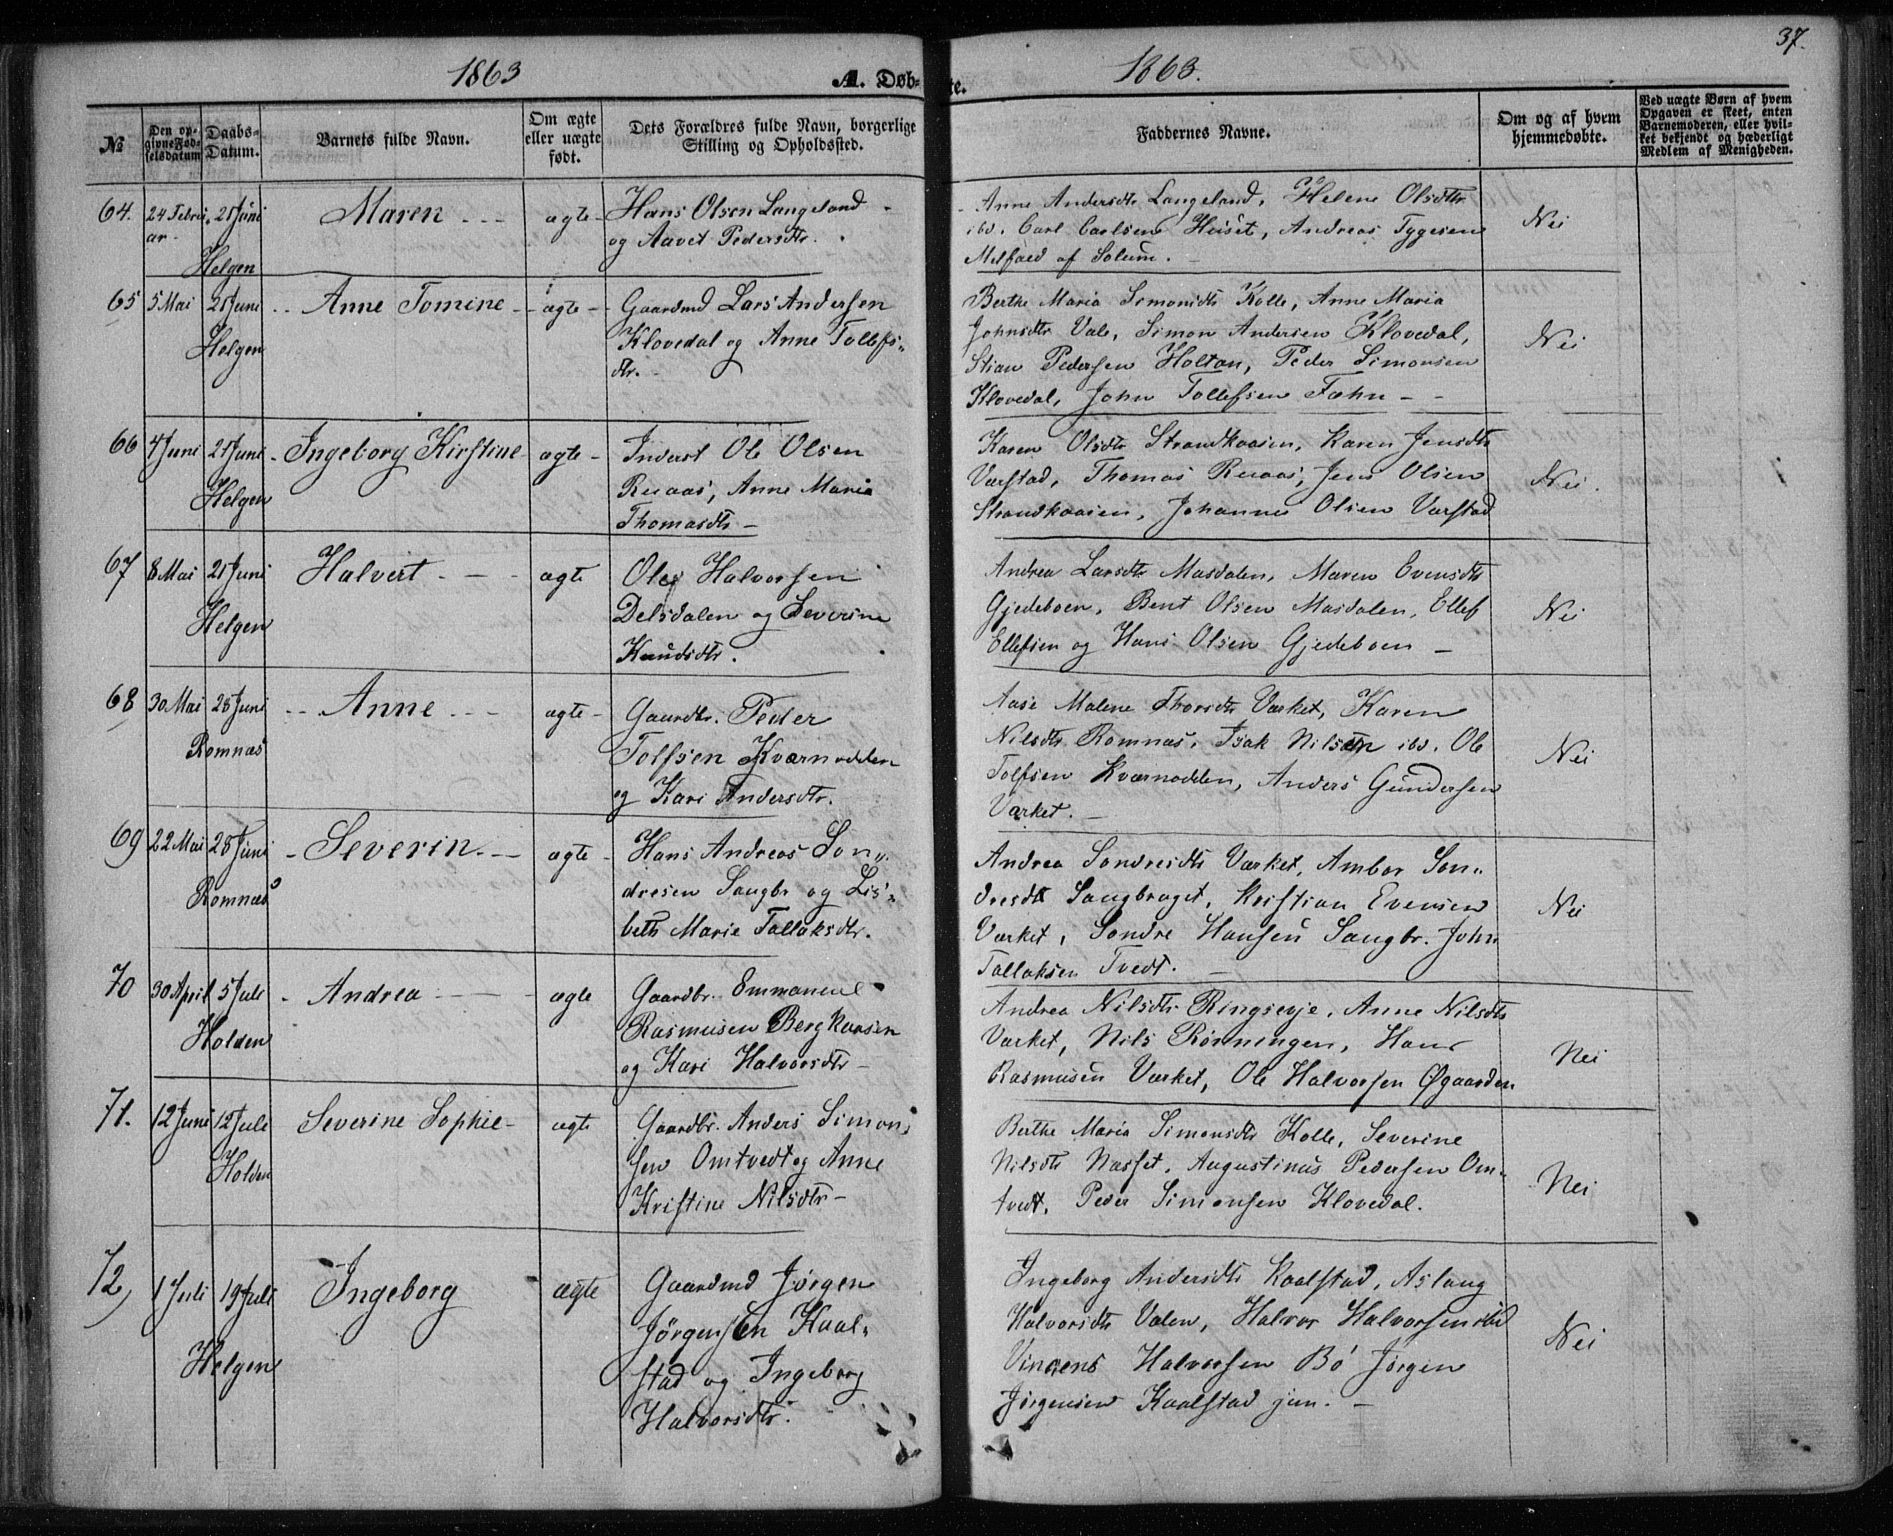 37.
1863 A. Døb- te. 1863.
№ Den opgivne Fødselsdatum Daabs-Datum. Barnets fulde Navn. Om ægte eller uægte født. Dets Forældres fulde Navn, borgerlige Stilling og Opholdssted. Faddernes Navne. Om og af hvem hjemmedøbte. Ved uægte Børn af hvem Opgaven er skeet, enten Barnemoderen, eller hvilket bekjendt og hæderligt Medlem af Menigheden.
64. 24 Febru- 21 Juni Maren ægte Hans Olsen Langeland
ar. Helgen og Aavet Pedersdtr.
Anne Andersdtr Langeland, Helene Olsdtr
ibd. Carl Carlsen Huset, Andreas Tygesen
Melfald af Solum. Nei
65 5 Mai 21 Juni Anne Tomine ægte Gaardmd Lars Andersen
Helgen Klovedal og Anne Tollefs-
dtr.
Berthe Maria Simonsdtr Kolle, Anne Maria
Johnsdtr Vale, Simon Andersen Klovedal,
Stian Pedersen Holtan, Peder Simonsen
Klovedal, John Tollefsen Fæhn Nei
66 4 Juni 21 Juni Ingeborg Kirstine ægte Inderst Ole Olsen
Helgen Ruaas, Anne Maria
Thomasdtr
Karen Olsdtr Strandkaasen, Karen Jensdtr
Varstad, Thomas Ruaas, Jens Olsen
Strandkaasen, Johannes Olsen Varstad Nei.
67 8 Mai 21 Juni Halvert ægte Ole Halvorsen
Helgen Delsdalen og Severine
Knudsdtr.
Andrea Larsdtr Masdalen, Maren Evensdtr
Gjedeboen, Bent Olsen Masdalen, Ellef
Ellefsen og Hans Olsen Gjedeboen Nei
68 30 Mai 28 Juni Anne ægte Gaardbr. Peder
Romnæs Tolfsen Kværnodden
og Kari Andersdtr.
Aase Malene Thorsdtr Værket, Karen
Nilsdtr Romnæs, Isak Nilsen ibd. Ole
Tolfsen Kværnodden, Anders Gundersen
Værket. Nei
69 22 Mai 28 Juni Severin ægte Hans Andreas Son-
Romnæs dresen Saugbr og Lis-
beth Marie Tallaksdtr.
Andrea Sondresdtr Værket, Ambor Son-
dresdtr Saugbruget, Kristian Evensen
Værket, Sondre Hansen Saugbr. John
Tallaksen Tvedt. Nei
70 30 April 5 Juli Andrea ægte Gaardbr. Emmanuel
Holden Rasmusen Bergkaasen
og Kari Halvorsdtr
Andrea Nilsdtr Ringsevje, Anne Nilsdtr
Værket, Nils Rönningen, Hans
Rasmusen Værket, Ole Halvorsen Øgaarden Nei
71. 12 Juni 12 Juli Severine Sophie ægte Gaardbr. Anders Simon-
Holden sen Omtvedt og Anne
Kristine Nilsdtr
Berthe Maria Simonsdtr Kolle, Severine
Nilsdtr Næsset, Augustinus Pedersen Om-
tvedt, Peder Simonsen Klovedal. Nei
72, 1 Juli 19 Juli Ingeborg ægte Gaardmd Jørgen
Helgen Jörgensen Kaal-
stad og Ingeborg
Halvorsdtr.
Ingeborg Andersdtr Kaalstad, Aslaug
Halvorsdtr Valen, Halvor Halvorsen ibd
Vincens Halvorsen Bö Jørgen
Jørgensen Kaalstad jun. Nei